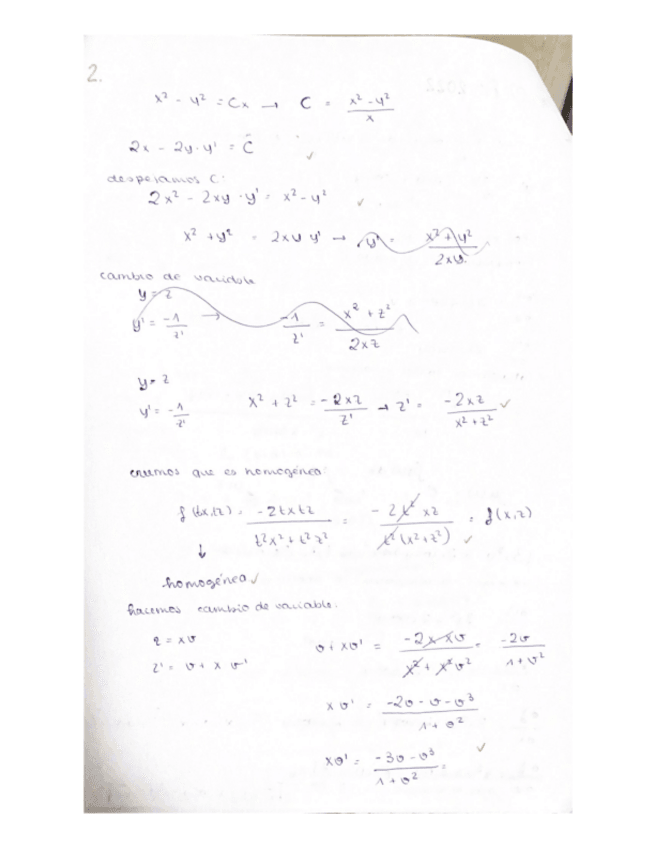 2.
x² - y² = Cx → C = x² - y² / x
2x - 2y·y' = C ✓
despejamos C:
2x² - 2xy·y' = x² - y² ✓
x² + y² = 2xy y' → y' = x² + y² / 2xy
cambio de variable
y = z
y' = -1/z' → -1/z' = x² + z² / 2xz
y = z
y' = -1/z' x² + z² = -2xz / z' → z' = -2xz / x² + z² ✓
que es homogénea:
f(tx,tz) = -2txtz / t²x² + t²z² = -2t²xz / t²(x² + z²) = f(x,z) ✓
↓
homogénea ✓
hacemos cambio de variable:
z = xv v + xv' = -2x·xv / x² + x²v² = -2v / 1+v²
z' = v + x v'
xv' = -2v - v - v³ / 1+v²
xv' = -3v - v³ / 1+v² = ✓